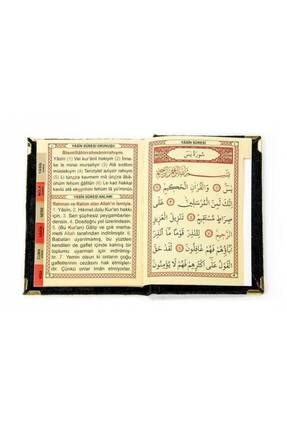 YÂSÎN SÛRESİ OKUNUŞU
Bismillâhirrahmânirrahıym.
Yâsîn (1) Vel kur'ânil hakiym (2) İnne-
ke le minel murseliyn (3) Alâ sırâtım
müstekiym (4) Tenziylel aziyzir rahıym
(5) li tünzira kavmem mâ
fehüm ğâfilûn (6) Le kad hakkal
kavlü alâ fehüm lâ
YÂSÎN SÛRESİ ANLAMI
Rahman ve Rahim olan Allah'ın ismiyle.
1. Yâsîn, 2. Hikmet dolu Kur'an hakkı
için, 3. Sen şüphesiz peygamberler-
densin. 4. Dosdoğru yol üzerindesin.
5. (BU Kur'an) Gâlip ve çok merha-
metli Allah tarafından indirilmiştir. 6.
Babaları uyarılmamış, bu yüzden
kendileri de gaflet içinde olan bir
7. Yemin olsun ki onların çoğu
gafletlerinin cezasını hak etmişler-
dir. Çünkü onlar iman etmiyorlar.
YÂSÎN SÛRESİ
سُورَةُ يٰسٓ
بِسْمِ اللّٰهِ الرَّحْمٰنِ الرَّحِيمِ
يٰسٓ وَالْقُرْاٰنِ الْحَكِيمِ
اِنَّكَ لَمِنَ الْمُرْسَلِينَ عَلٰى
صِرَاطٍ مُسْتَقِيمٍ تَنْزِيلَ الْعَزِيزِ
الرَّحِيمِ لِتُنْذِرَ قَوْمًا مَٓا اُنْذِرَ
اٰبَٓاؤُهُمْ فَهُمْ غَافِلُونَ لَقَدْ حَقَّ
الْقَوْلُ عَلٰٓى اَكْثَرِهِمْ فَهُمْ لَا يُؤْمِنُونَ